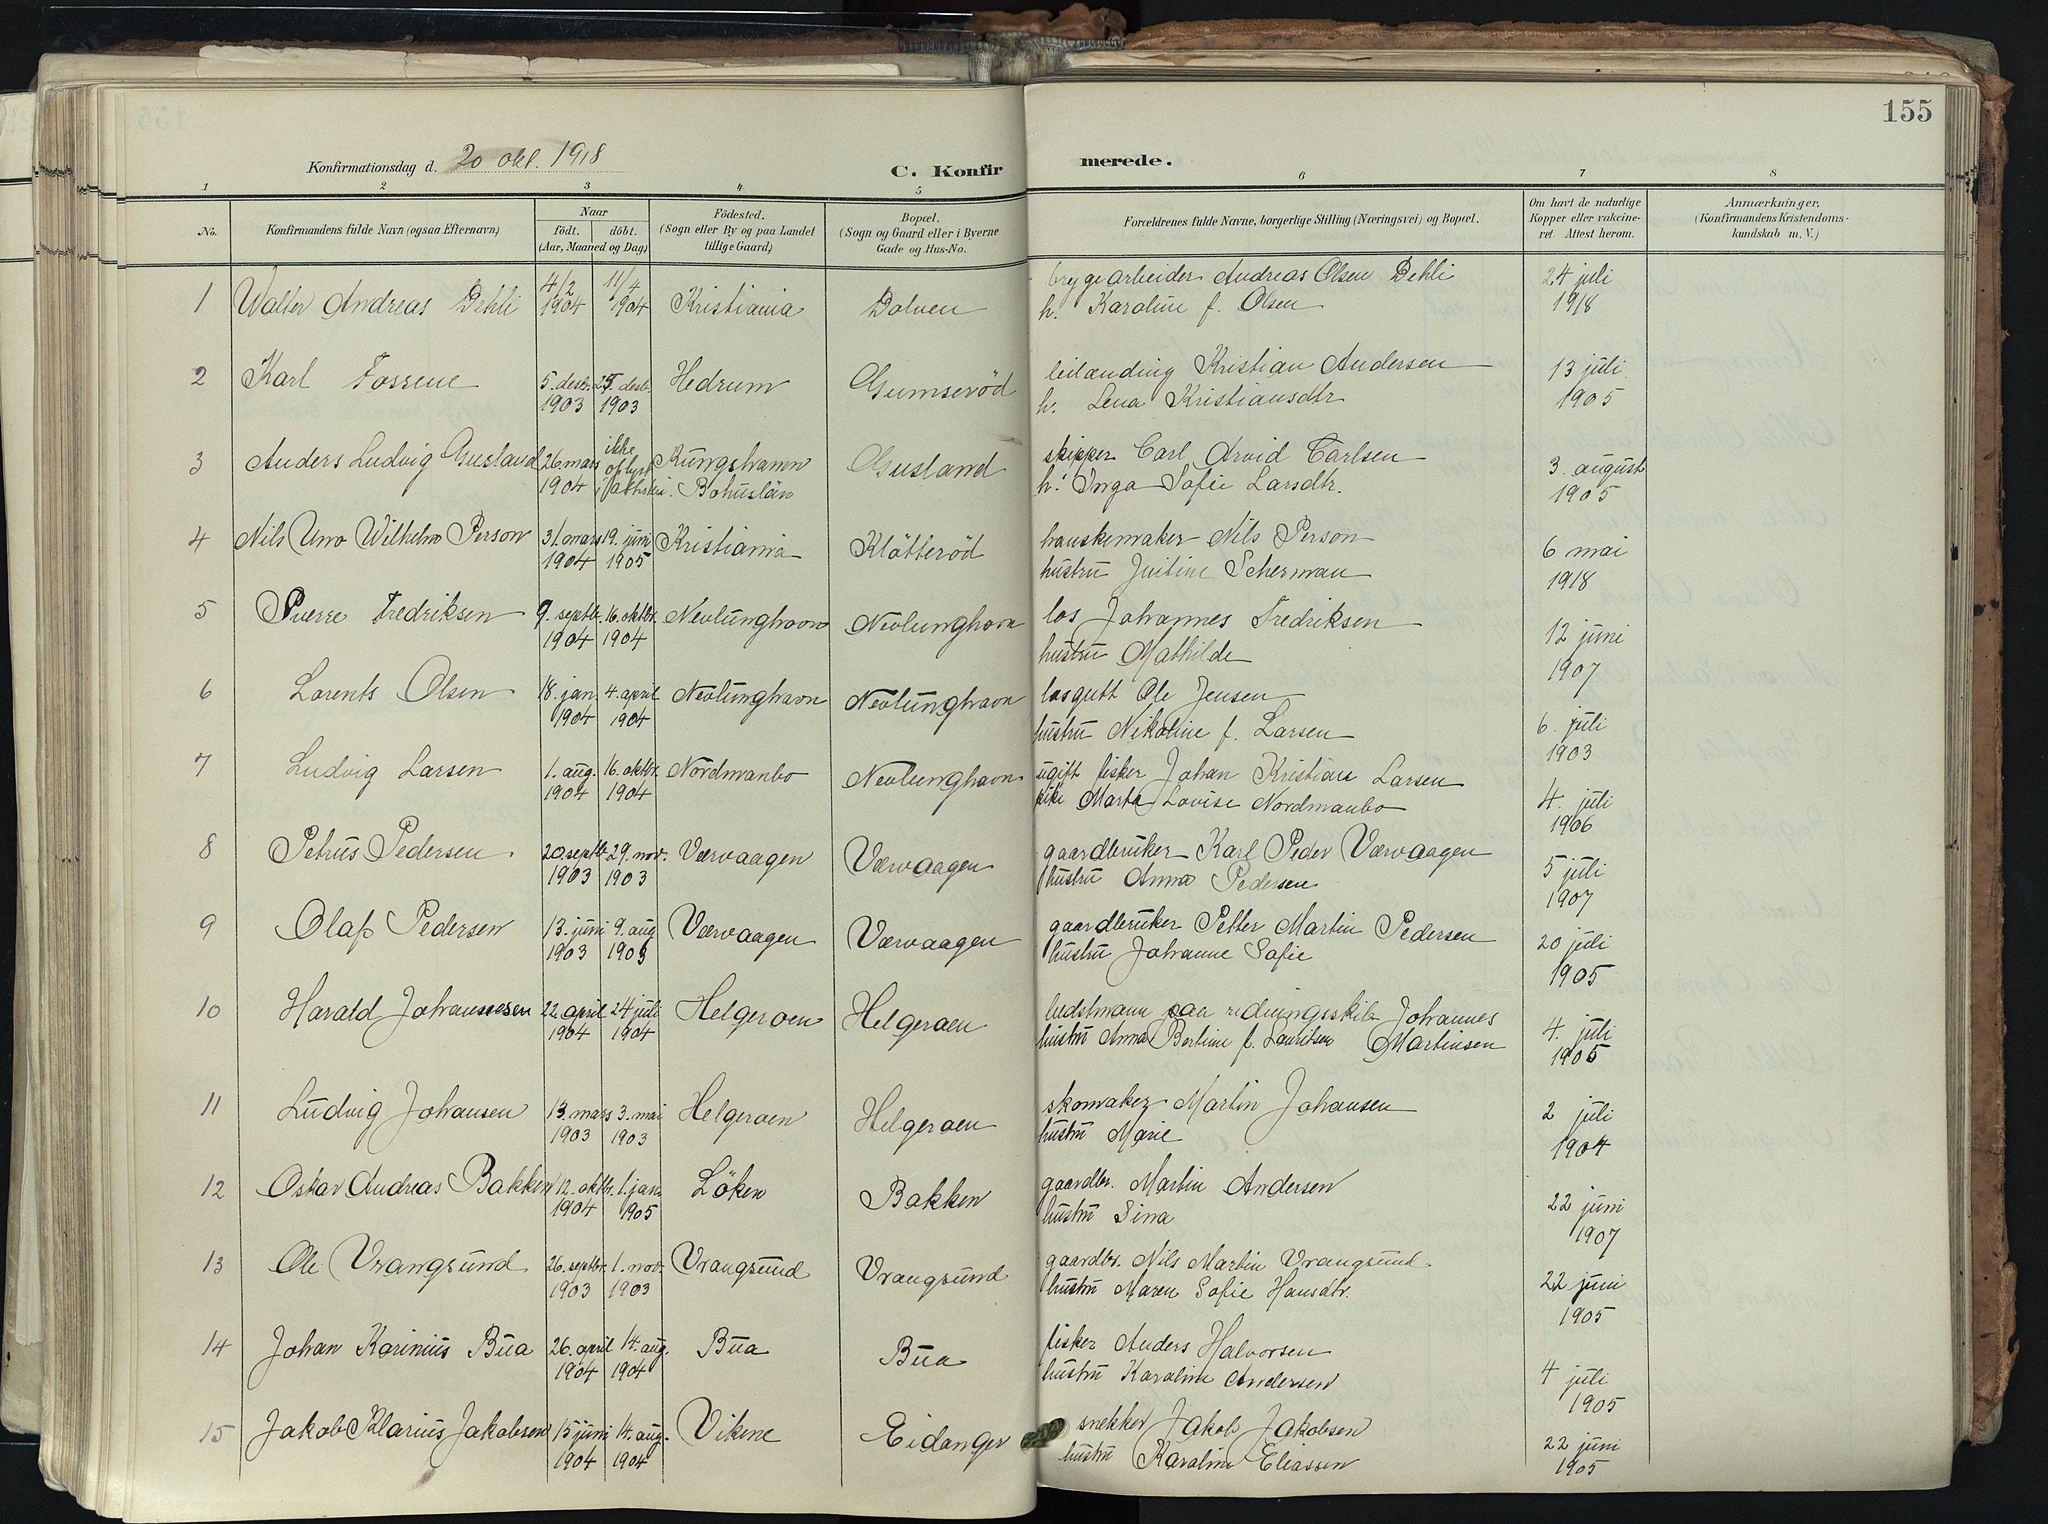 155
Konfirmationsdag d. 20 okt. 1918
C. Konfir
merede.
1 2 3 4 5 6 7 8
No.
Konfirmandens fulde Navn (ogsaa Efternavn)
Naar
födt. döbt.
(Aar, Maaned og Dag)
Födested.
(Sogn eller By og paa Landet
tillige Gaard)
Bopæl.
(Sogn og Gaard eller i Byerne
Gade og Hus-No.
Forældrenes fulde Navne, borgerlige Stilling (Næringsvei) og Bopæl.
Om havt de naturlige
Kopper eller vakcine-
ret. Attest herom.
Anmærkninger.
(Konfirmandens Kristendoms-
kundskab m. V.)
1 Walter Andreas Dehli 4/2 1904 11/4 1904 Kristiania Dolven
bryggearbeider Andreas Olsen Dehli
h. Karoline f. Olsen
24 juli
1918
2 Karl Fossene 5. desbr. 1903 25. desbr. 1903 Hedrum Gumseröd
leilænding Kristian Andersen
h. Lena Kristiansdtr
13 juli
1905
3 Anders Ludvig Gusland 26. mars 1904 ikke oplyst i Kungshamn Bohuslän Gusland
skipper Carl Arvid Carlsen
h. Inga Sofie Larsdtr.
3. august
1905
4 Nils Uno Wilhelm Person 31. mars 1904 19. juni 1905 Kristiania Klåtteröd
hanskemaker Nils Person
hustru Scherman
6 mai
1918
5 Sverre Fredriksen 9. septbr. 1904 16. oktbr. 1904 Nevlunghavn Nevlunghavn
los Johannes Fredriksen
hustru Mathilde
12 juni
1907
6 Lorents Olsen 18. jan 1904 4. april 1904 Nevlunghavn Nevlunghavn
losgutt Ole Jensen
hustru Nikoline f. Larsen
6. juli
1903
7 Ludvig Larsen 1. aug. 1904 16. oktbr. 1904 Nordmanbo Nevlunghavn
ugift fisker Johan Kristian Larsen
pike Marta Lovise Nordmanbo
4. juli
1906
8 Petrus Pedersen 20. septbr. 1903 29. nov. 1903 Værvaagen Værvaagen
gaardbruker Karl Peder Værvaagen
hustru Anna Pedersen
5 juli
1907
9 Olaf Pedersen 13. juni 1903 9. aug 1903 Værvaagen Værvaagen
gaardbruker Petter Martin Pedersen
hustru Johanne Sofie
20 juli
1905
10 Harald Johannesen 22. april 1904 24 juli 1904 Helgeroen Helgeroen
bedstmann paa redningsskib Johannes
hustru Anna Bertine f. Lauritsen Martinsen
4. juli
1905
11 Ludvig Johansen 13. mars 1903 3. mai 1903 Helgeroen Helgeroen
skomaker Martin Johansen
hustru Marie
2 juli
1904
12 Oskar Andreas Bakken 12. oktbr. 1904 1. jan 1905 Löken Bakken
gaardbr. Martin Andersen
hustru Sina
22 juni
1907
13 Ole Vrangsund 26. septbr. 1903 1. nov. 1903 Vrangsund Vrangsund
gaardbr. Nils Martin Vrangsund
hustru Maren Sofie Hansdtr.
22 juni
1905
14 Johan Karinius Bua 26. april 1904 14. aug. 1904 Bua Bua
fisker Anders Halvorsen
hustru Karoline Andersen
4 juli
1905
15 Jakob Klarius Jakobsen 15 juni 1904 14. aug. 1904 Vikene Eidanger
snekker Jakob Jakobsen
hustru Karoline Eliassen
22 juni
1905